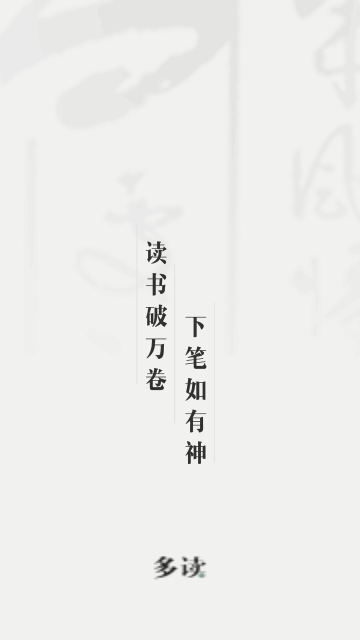 读书破万卷
下笔如有神
多读